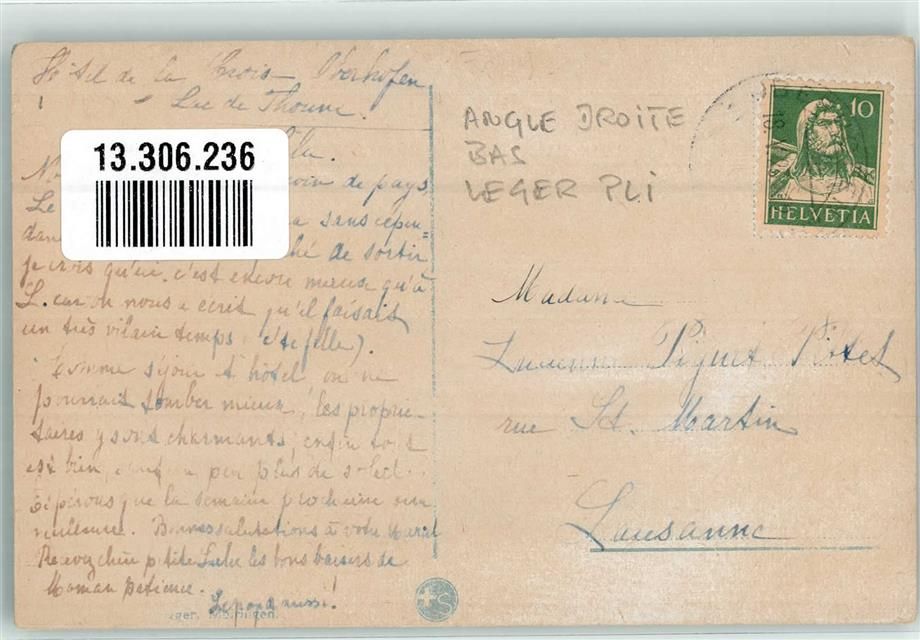 Hôtel de la Croix Oberhofen
Lac de Thoune
13.306.236
coin de pays
Le
sans cepen=
dan de sortir
je crois qu'ici c'est encore mieux qu'à
L. car on nous a écrit qu'il faisait
un très vilain temps
Comme séjour et hôtel on ne
pourrait tomber mieux, les proprié-
taires y sont charmants, enfin tout
est bien, un peu plus de soleil.
Espérons que la semaine prochaine sera
meilleure. Bonnes salutations à votre Mari
Recevez chère p'tite Lulu les bons baisers de
Maman Patience.
Le papa aussi!
ANGLE DROITE
BAS
LEGER PLI
10
HELVETIA
Madame
Lucienne Piguet Pôtel
rue St. Martin
Lausanne